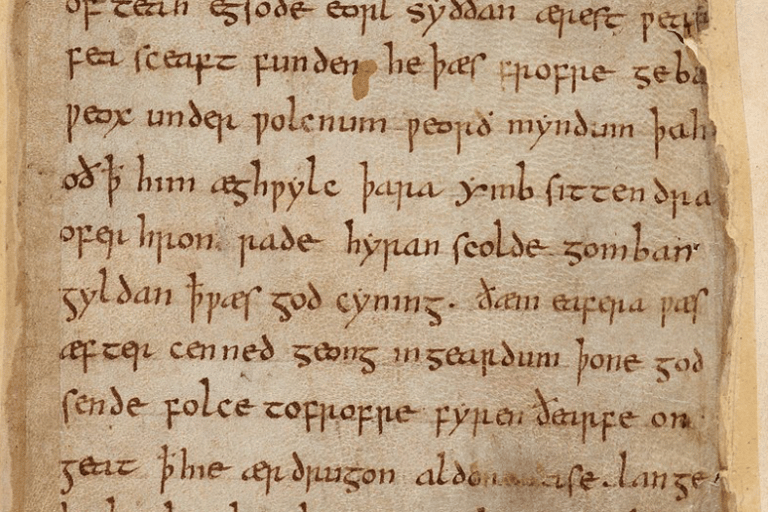 of teah egsode eorl syððan ærest
fea sceaft funden he þæs frofre
ƿeox under ƿolcnum ƿeorð myndum þah
oð ꝥ him æghƿylc þara ymb sittendra
ofer hron rade hyran scolde gomban
gyldan ꝥ ƿæs god cyning. ðæm eafera ƿæs
æfter cenned geong in geardum þone god
sende folce to frofre fyren ðearfe on
geat ꝥ hie ær drugon lange